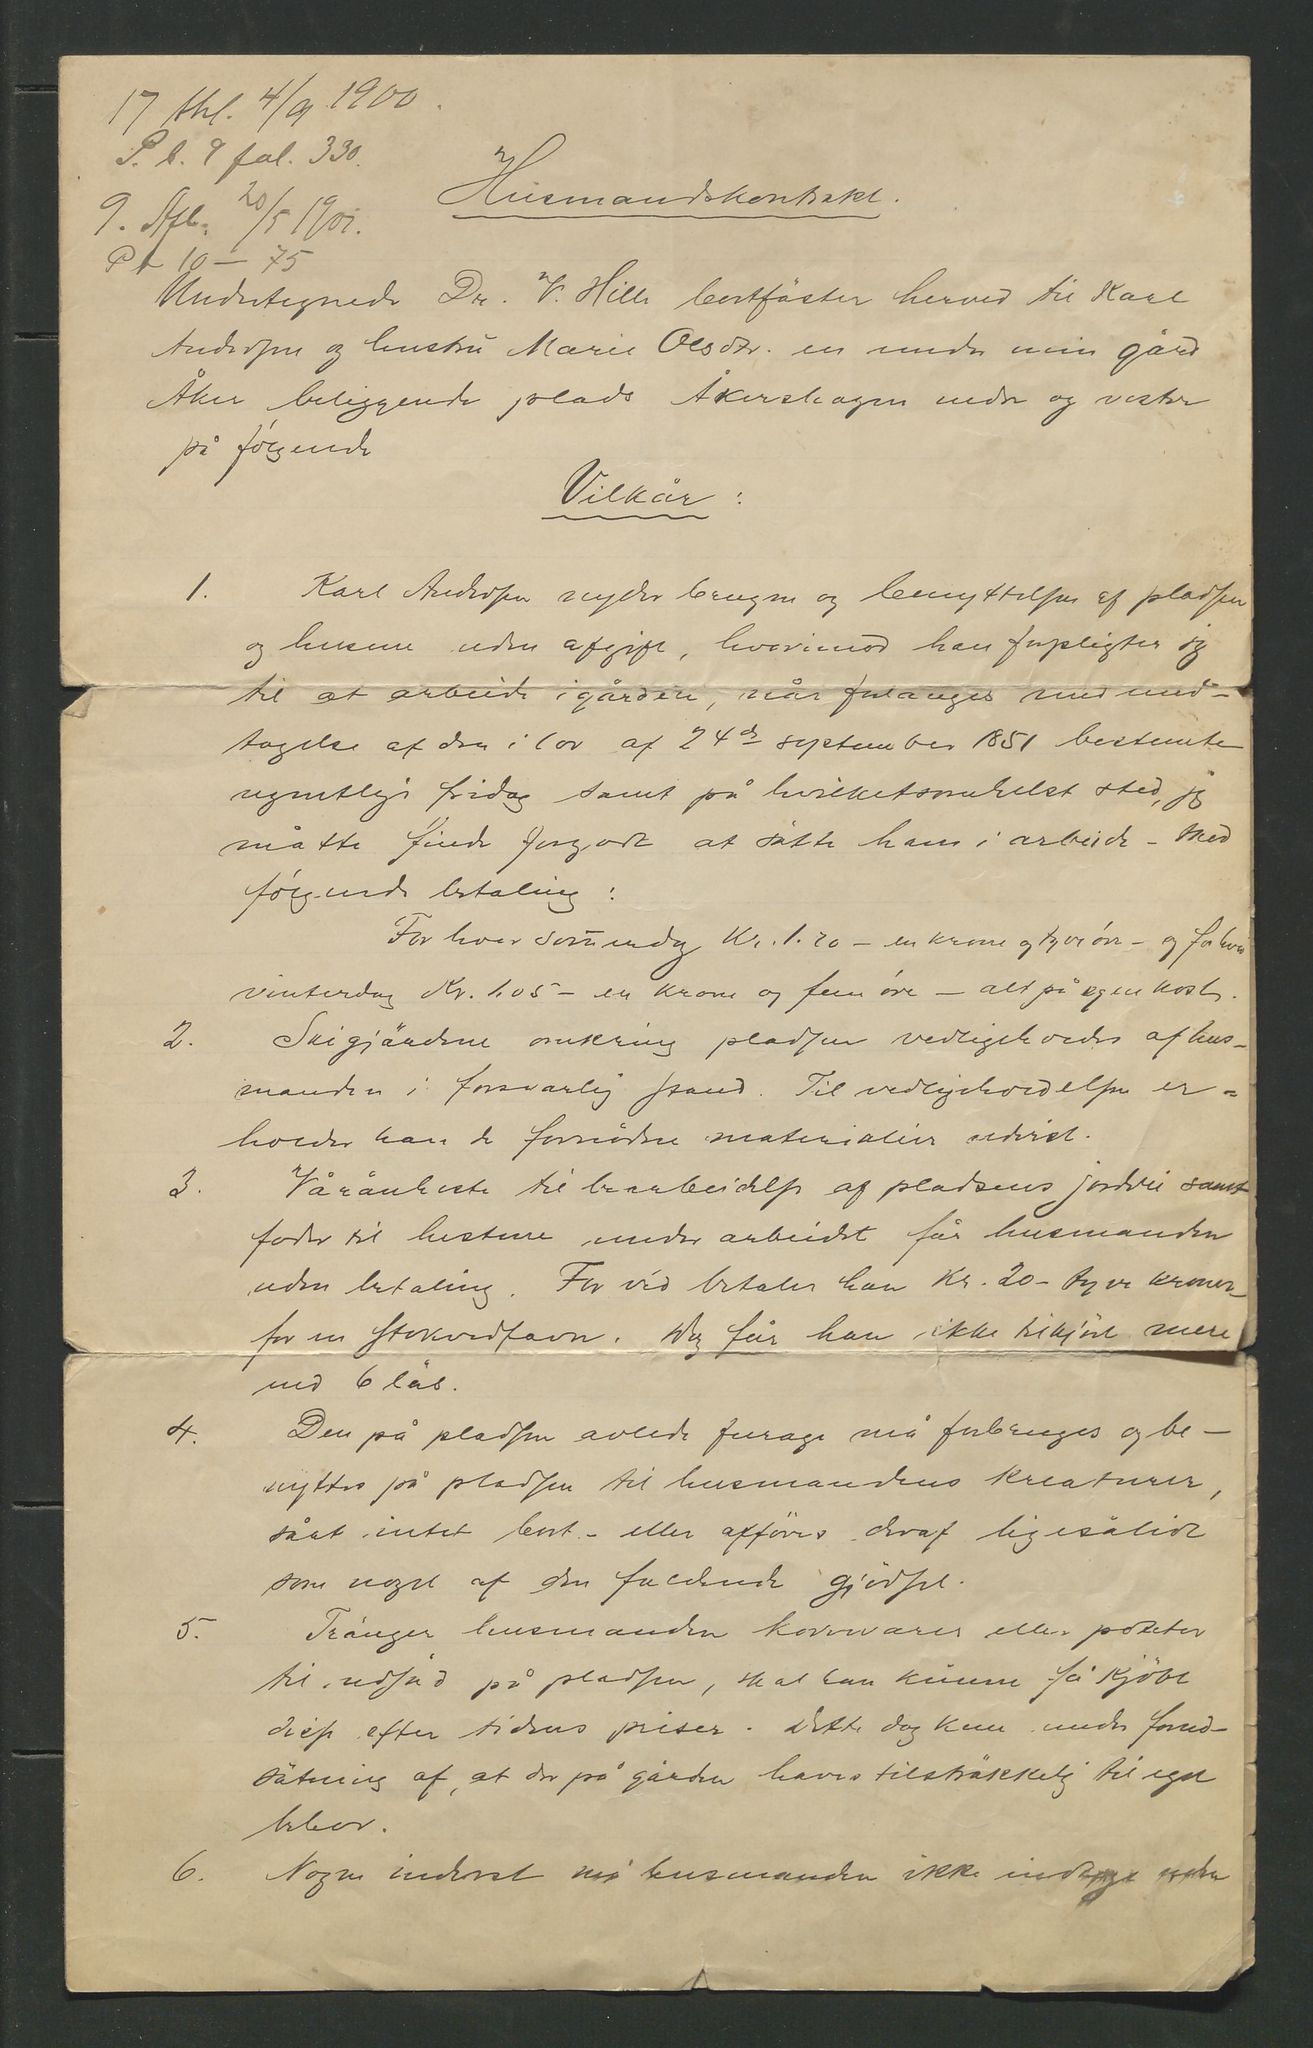 17 thl. 4/9 1900.
P. b. 9 fol. 330.
9. Afl. 20/5 1901.
P b 10 – 75
Husmandskontrakt.
Undertegnede Dr. V. Hille bortfäster herved til Karl
Andersen og hustru Marie Olsdtr. en under min gård
Åker beliggende plads Åkershagen nedre og vestre
på følgende
Vilkår:
1. Karl Andersen nyder brugen og benyttelsen af pladsen
og husene uden afgift, hvorimod han forpligter sig
til at arbeide i gården, når forlanges med und-
tagelse af den i lov af 24de september 1851 bestemte
ugentlige fridag samt på hvilketsomhelst sted, jeg
måtte finde forgodt at sätte ham i arbeide – med
følgende betaling:
For hver sommerdag Kr. 1.20 – en krone og tyve öre – og for hver
vinterdag Kr. 1.05 – en krone og fem öre – alt på egen kost.
2. Skigjärdene omkring pladsen vedligeholdes af hus-
manden i forsvarlig stand. Til vedligeholdelsen er-
holder han de fornödne materialier udvist.
3. Våränheste til bearbeidelse af pladsens jordvei samt
foder til hestene under arbeidet får husmanden
uden betaling. For ved betaler han Kr. 20 – tyve kroner –
for en stokvedfavn. Dog får han ikke tilkjört mere
end 6 läs.
4. Den på pladsen avlede furage må forbruges og be-
nyttes på pladsen til husmandens kreaturer,
såat intet bort- eller afföres deraf ligesålidt
som noget af den faldende gjödsel.
5. Tränger husmanden kornvarer eller poteter
til udsäd på pladsen, skal han kunne få kjöbt
disse efter tidens priser. Dette dog kun under forud-
sätning af, at der på gården haves tilsträkkelig til eget
behov.
6. Nogen inderst må husmanden ikke indtage uden